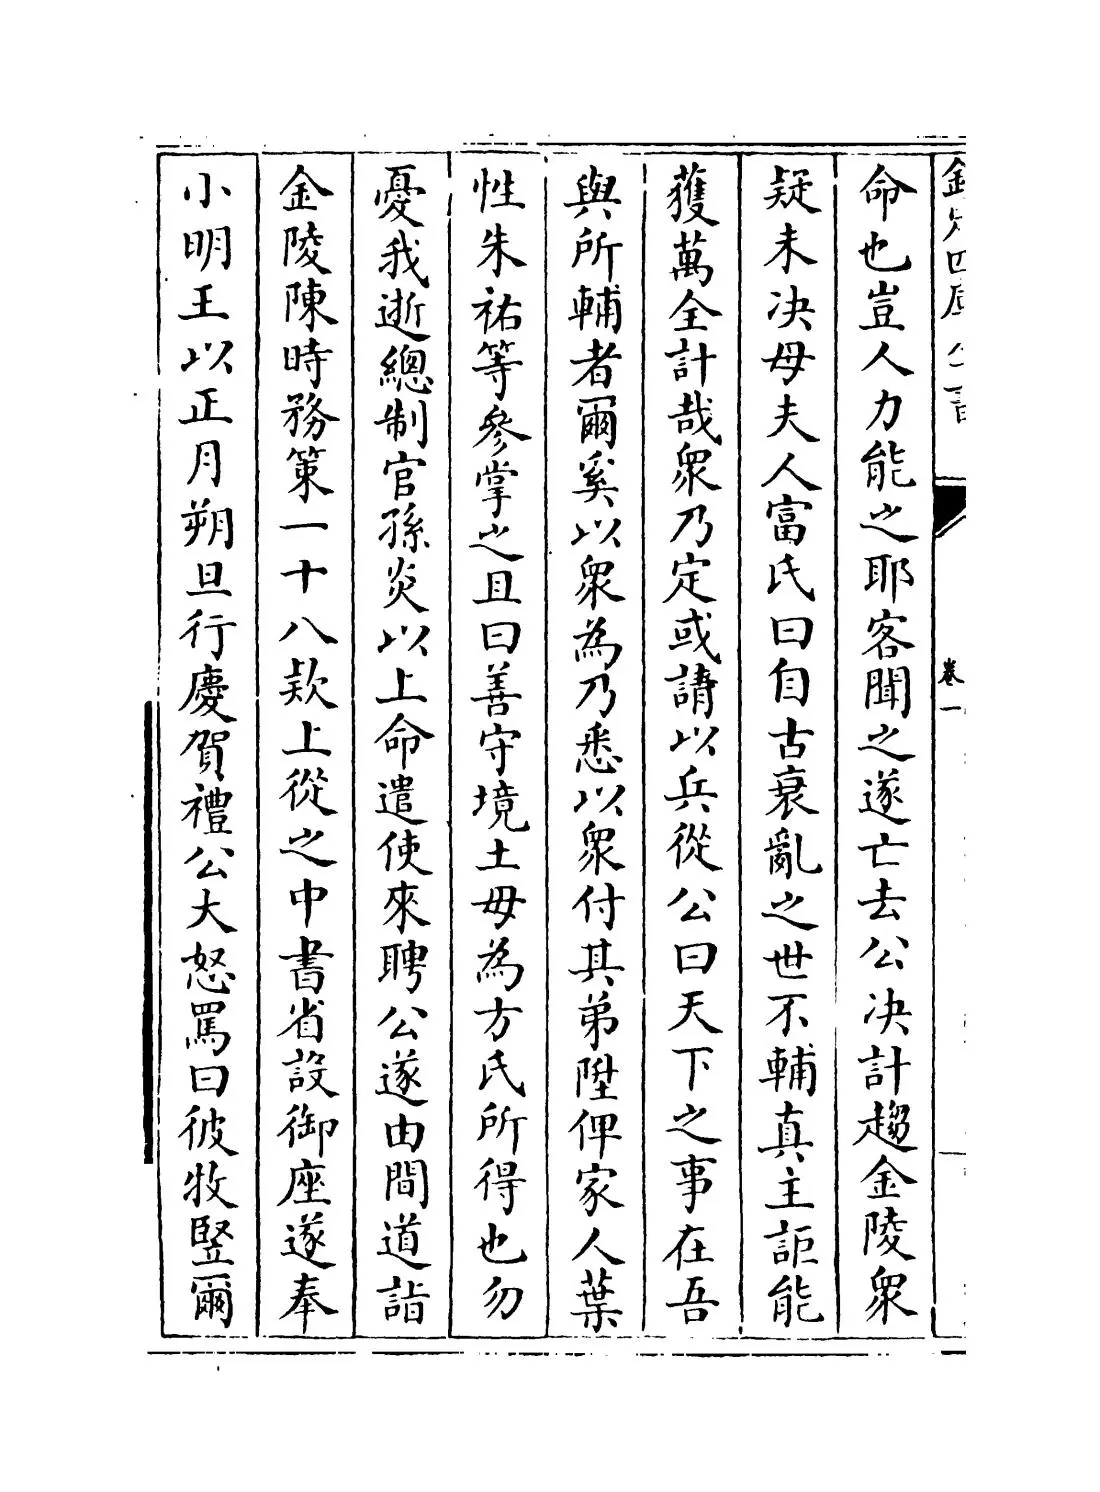 欽定四庫全書
卷一
命也豈人力能之耶客聞之遂亡去公决計趨金陵衆
疑未决母夫人富氏曰自古衰亂之世不輔真主詎能
獲萬全計哉衆乃定或請以兵從公曰天下之事在吾
與所輔者爾奚以衆為乃悉以衆付其弟陞俾家人葉
性朱祐等參掌之且曰善守境土毋為方氏所得也勿
憂我逝總制官孫炎以上命遣使來聘公遂由間道詣
金陵陳時務策一十八款上從之中書省設御座遂奉
小明王以正月朔旦行慶賀禮公大怒罵曰彼牧豎爾